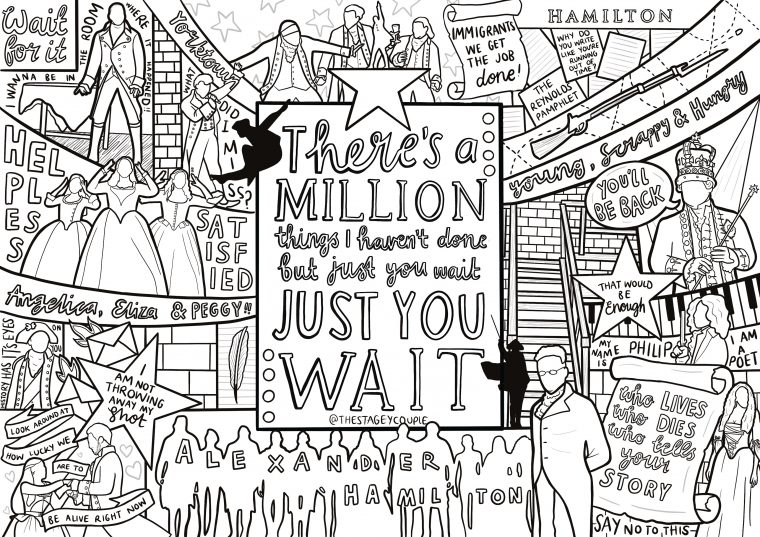 Wait
for it
I WANNA BE IN
THE ROOM
WHERE IT
HAPPENED!!
Yorktown
WHAT
DID
I
MISS?
IMMIGRANTS
WE GET
THE JOB
done!
HAMILTON
WHY DO
YOU WRITE
LIKE YOU'RE
RUNNING
OUT OF
TIME?
THE
REYNOLDS
PAMPHLET
young, Scrappy & Hungry
HELPLESS
SATISFIED
Angelica, Eliza & PEGGY!!
There's a
MILLION
things I haven't done
but just you wait
JUST YOU
WAIT
@THESTAGEYCOUPLE
YOU'LL
BE BACK
THAT WOULD
BE
Enough
MY
NAME
IS PHILIP
I AM
A
POET
HISTORY HAS ITS EYES
ON
YOU
I
AM NOT
THROWING
AWAY MY
Shot
LOOK AROUND AT
HOW LUCKY WE
ARE TO
BE ALIVE RIGHT NOW
ALEXANDER
HAMILTON
who LIVES
who DIES
who tells
your
STORY
SAY NO TO THIS